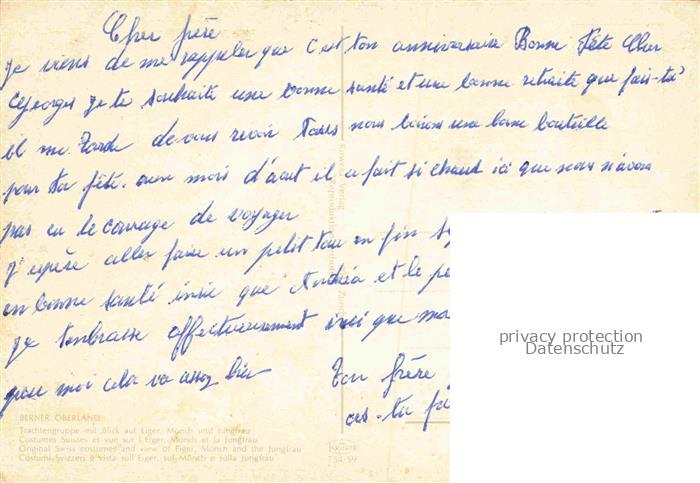 Cher frère
Je viens de me rappeler que c'est ton anniversaire Bonne Fête Cher
Georges je te souhaite une bonne santé et une bonne retraite que fais-tu
il me tarde de vous revoir Tous nous boirons une bonne bouteille
pour ta fête. au mois d'aout il a fait si chaud ici que nous n'avons
pas eu le courage de voyager
J'espère aller faire un petit tour en fin
en bonne santé insie que Andréa et le
Je t'embrasse affectueusement insi que ma
pour moi cela va assez bien
Ton frère
as-tu
privacy protection
Datenschutz
BERNER OBERLAND
Trachtengruppe mit Blick auf Eiger, Mönch und Jungfrau
Costumes Suisses et vue sur l'Eiger, Mönch et la Jungfrau
Original Swiss costumes and view of Eiger, Mönch and the Jungfrau
Costumi Svizzeri e vista sull'Eiger, sul Mönch e sulla Jungfrau
Verlag